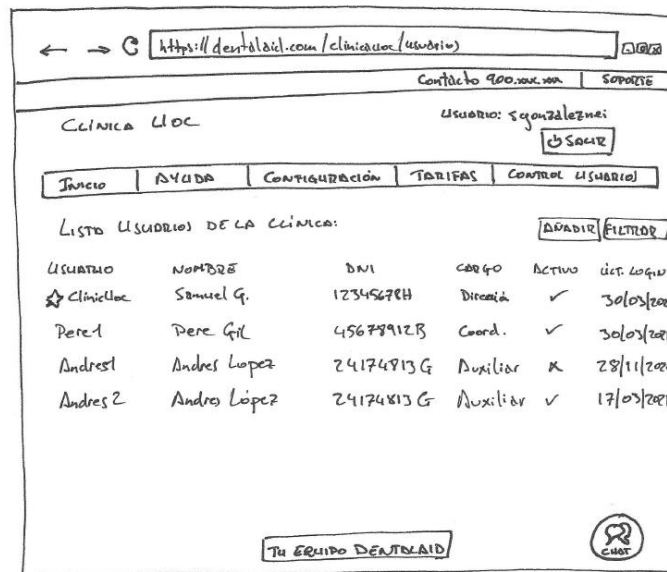 https://dentalaid.com/clinicauoc/usuarios
Contacto 900.xxx.xxx | SOPORTE
CLÍNICA UOC
USUARIO: sgonzaleznei
SALIR
INICIO | AYUDA | CONFIGURACIÓN | TARIFAS | CONTROL USUARIOS
LISTA USUARIOS DE LA CLÍNICA:
AÑADIR FILTRAR
USUARIO NOMBRE DNI CARGO ACTIVO ÚLT. LOGIN
ClinicUoc Samuel G. 12345678H Dirección ✓ 30/03/202
Pere1 Pere Gil 45678912B Coord. ✓ 30/03/202
Andres1 Andres Lopez 24174813G Auxiliar x 28/11/202
Andres2 Andres López 24174813G Auxiliar ✓ 17/03/202
TU EQUIPO DENTALAID
CHAT